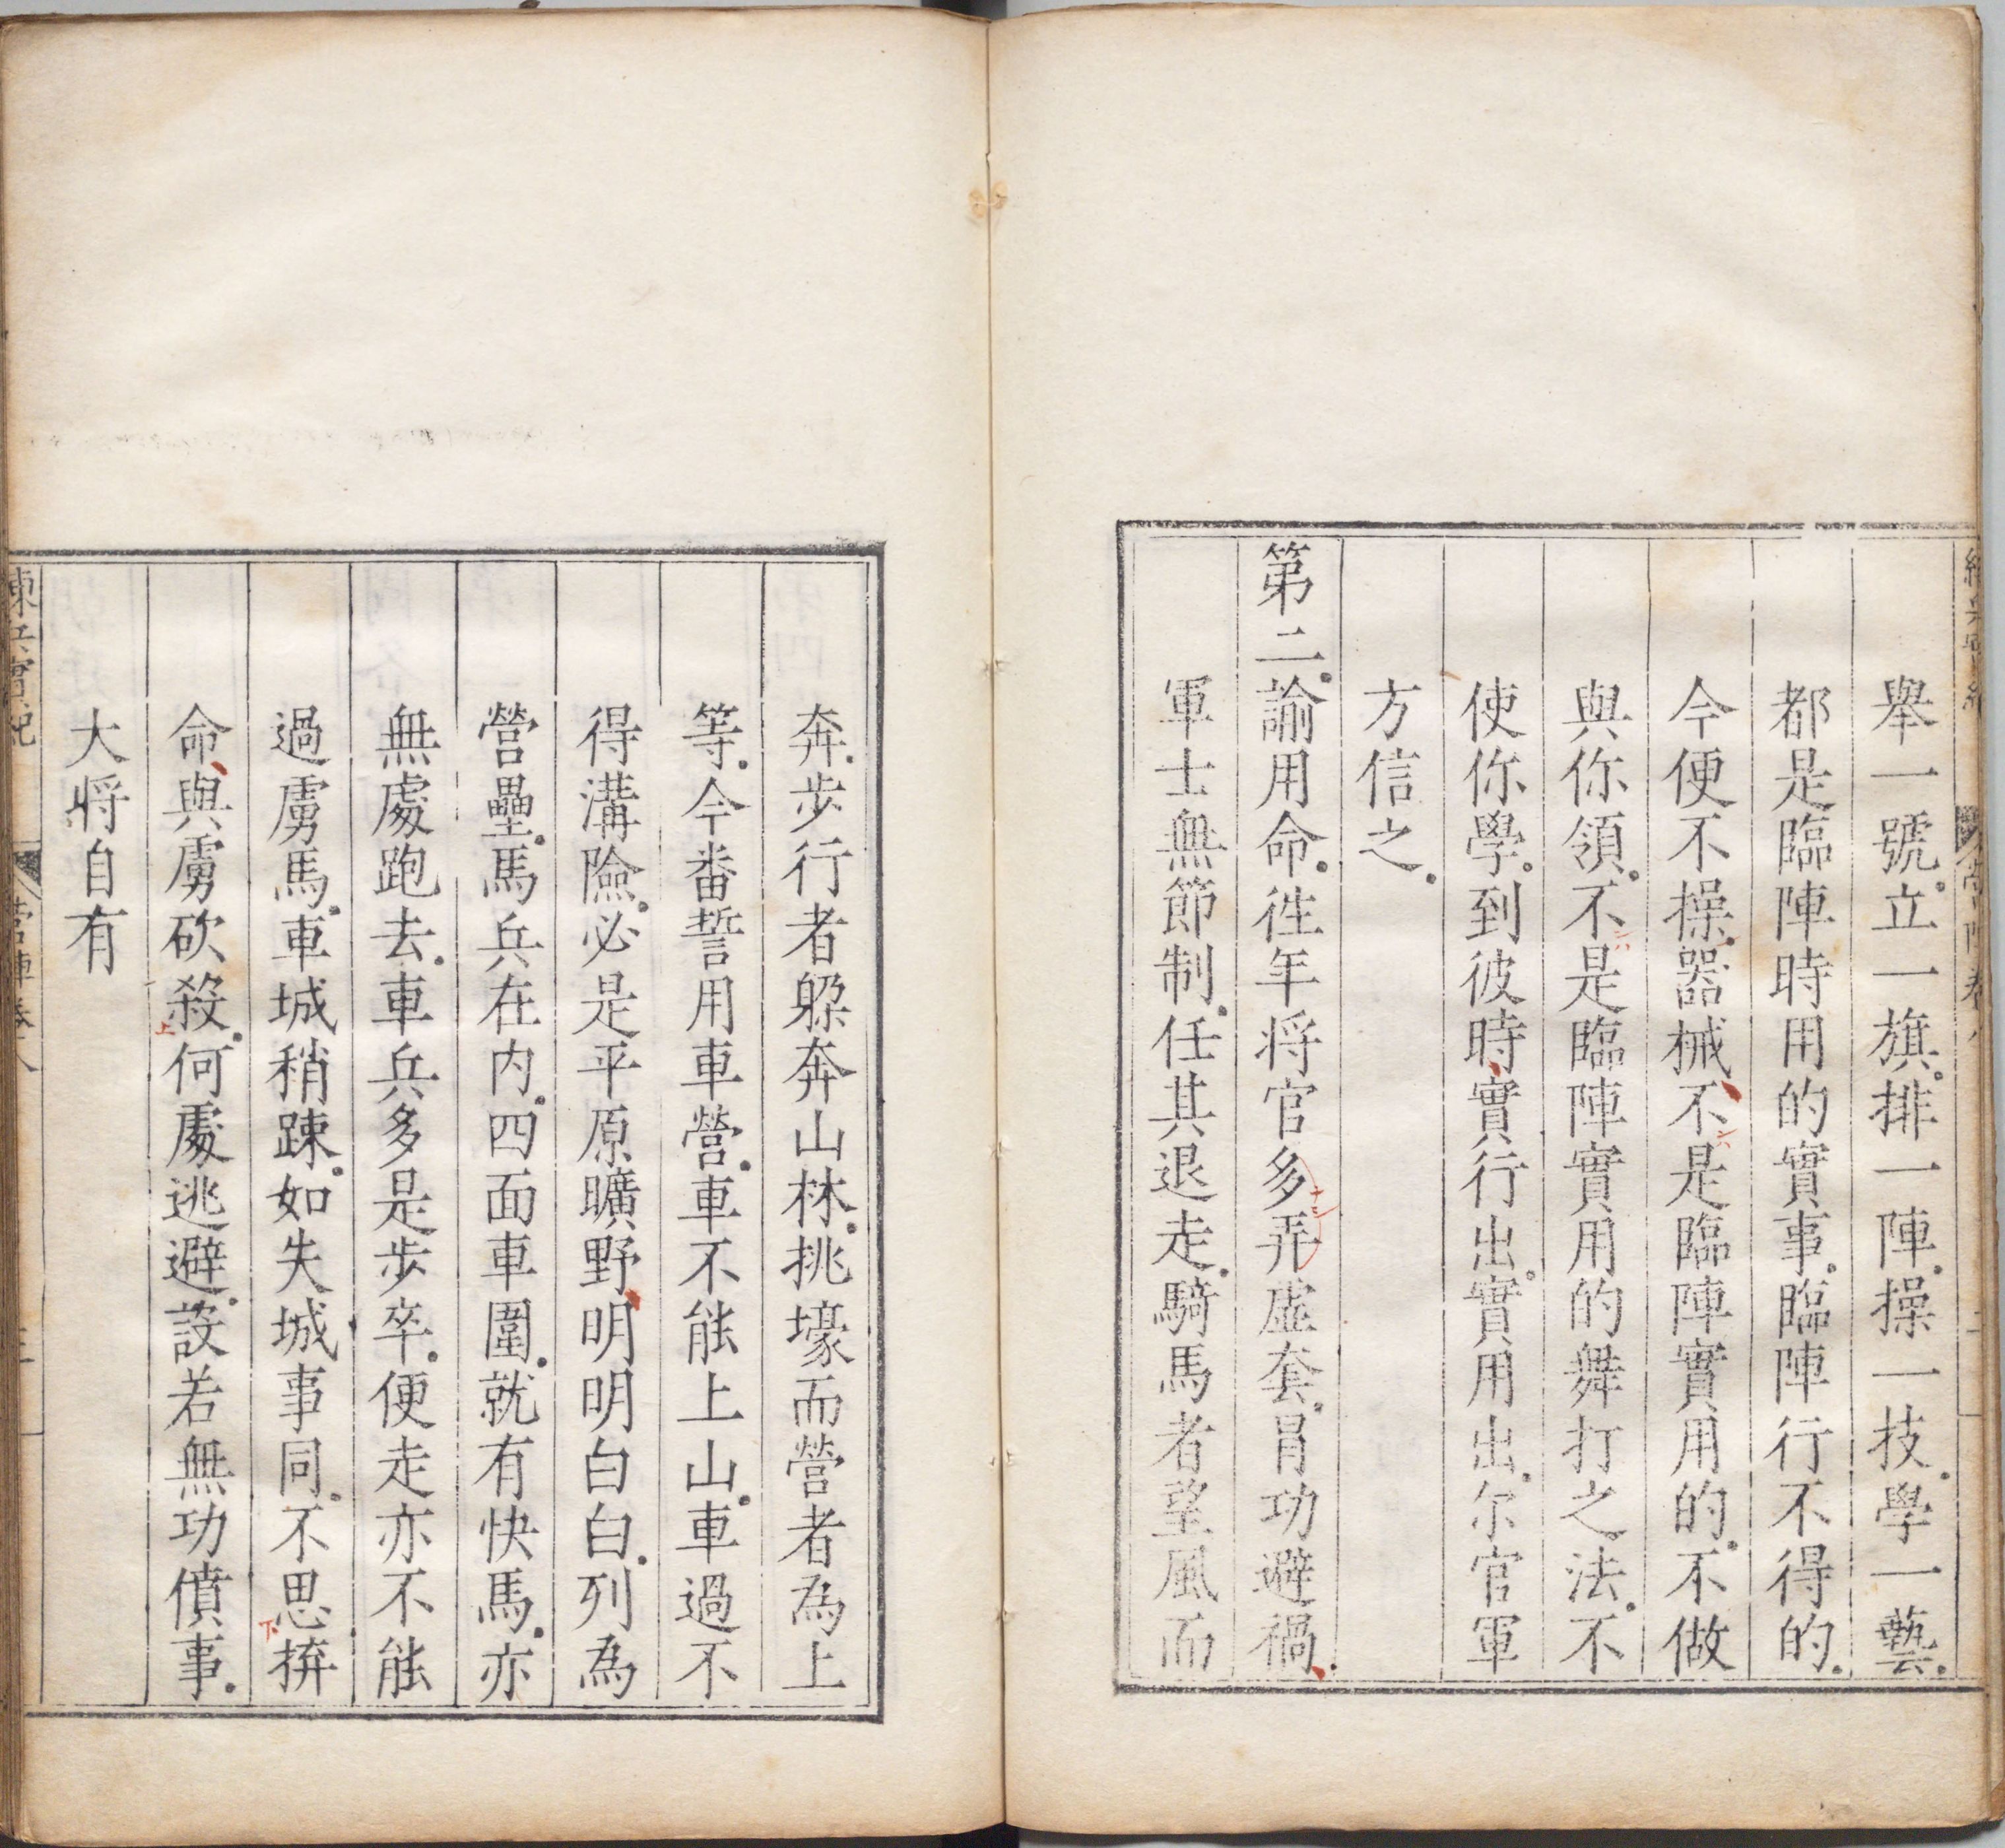 舉一號。立一旗。排一陣。操一技。學一藝。
都是臨陣時用的實事。臨陣行不得的。
今便不操。器械不是臨陣實用的。不做
與你領。不是臨陣實用的舞打之法。不
使你學。到彼時實行出。實用出。尔官軍
方信之。
第二。諭用命。徃年将官多弄虛套。冐功避禍。
軍士無節制。任其退走。騎馬者望風而
奔。步行者躱奔山林。挑壕而營者為上
等。今畨誓用車營。車不能上山。車過不
得溝險。必是平原曠野。明明白白。列為
營壘。馬兵在内。四面車圍。就有快馬。亦
無處跑去。車兵多是步卒。便走亦不能
過虜馬。車城稍踈。如失城事同。不思拚
命與虜砍殺。何處逃避。設若無功僨事。
大将自有
營陣卷八
三